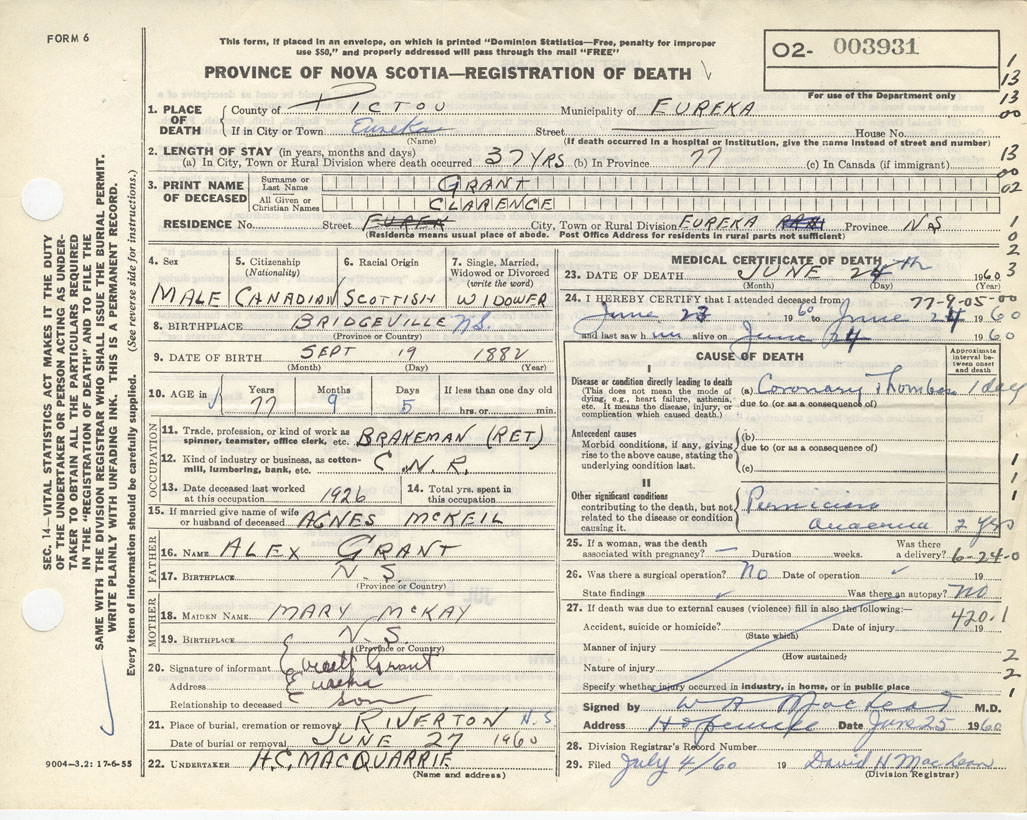 FORM 6
This form, if placed in an envelope, on which is printed "Dominion Statistics—Free, penalty for improper
use $50," and properly addressed will pass through the mail "FREE"
PROVINCE OF NOVA SCOTIA—REGISTRATION OF DEATH
02- 003931
For use of the Department only
1. PLACE OF DEATH
County of PICTOU Municipality of EUREKA
If in City or Town Eureka Street House No.
(Name) (If death occurred in a hospital or institution, give the name instead of street and number)
2. LENGTH OF STAY (in years, months and days)
(a) In City, Town or Rural Division where death occurred 37 YRS (b) In Province 77 (c) In Canada (if immigrant)
3. PRINT NAME OF DECEASED
Surname or Last Name GRANT
All Given or Christian Names CLARENCE
RESIDENCE No. Street EUREK City, Town or Rural Division EUREKA Province NS
(Residence means usual place of abode. Post Office Address for residents in rural parts not sufficient)
4. Sex 5. Citizenship (Nationality) 6. Racial Origin 7. Single, Married, Widowed or Divorced (write the word)
MALE CANADIAN SCOTTISH WIDOWER
8. BIRTHPLACE BRIDGEVILLE NS.
(Province or Country)
9. DATE OF BIRTH SEPT 19 1882
(Month) (Day) (Year)
10. AGE in Years Months Days If less than one day old
77 9 5 hrs. or min.
11. Trade, profession, or kind of work as spinner, teamster, office clerk, etc. BRAKEMAN (RET)
12. Kind of industry or business, as cotton-mill, lumbering, bank, etc. C.N.R.
OCCUPATION
13. Date deceased last worked at this occupation 1926 14. Total yrs. spent in this occupation
15. If married give name of wife or husband of deceased AGNES MCKEIL
FATHER
16. NAME ALEX GRANT
17. BIRTHPLACE N.S.
(Province or Country)
MOTHER
18. MAIDEN NAME MARY MCKAY
19. BIRTHPLACE N.S.
(Province or Country)
20. Signature of informant Everett Grant
Address Eureka
Relationship to deceased son
21. Place of burial, cremation or removal RIVERTON N.S
Date of burial or removal JUNE 27 1960
22. UNDERTAKER H.C. MACQUARRIE
(Name and address)
MEDICAL CERTIFICATE OF DEATH
23. DATE OF DEATH JUNE 24th 1960
(Month) (Day) (Year)
24. I HEREBY CERTIFY that I attended deceased from 77-9-05-00
June 23 1960 to June 24 1960
and last saw him alive on June 24 1960
CAUSE OF DEATH
Approximate interval between onset and death
I
Disease or condition directly leading to death
(This does not mean the mode of dying, e.g., heart failure, asthenia, etc. It means the disease, injury, or complication which caused death.)
(a) Coronary Thombosis 1 day
due to (or as a consequence of)
Antecedent causes
Morbid conditions, if any, giving rise to the above cause, stating the underlying condition last.
(b)
due to (or as a consequence of)
(c)
II
Other significant conditions
contributing to the death, but not related to the disease or condition causing it.
Pernicious
Anaemia 2 yrs
25. If a woman, was the death associated with pregnancy? Duration weeks. Was there a delivery? 6-24-0
26. Was there a surgical operation? No Date of operation 19
State findings Was there an autopsy? No
27. If death was due to external causes (violence) fill in also the following:—
420.1
Accident, suicide or homicide? Date of injury 19
(State which)
Manner of injury
(How sustained)
Nature of injury
Specify whether injury occurred in industry, in home, or in public place
Signed by W A MacLeod M.D.
Address Hopewell Date June 25 1960
28. Division Registrar's Record Number
29. Filed July 4/60 19 David H MacLean
(Division Registrar)
1
13
13
00
13
00
02
1
0
2
3
1
1
1
2
2
1
SEC. 14—VITAL STATISTICS ACT MAKES IT THE DUTY
OF THE UNDERTAKER OR PERSON ACTING AS UNDER-
TAKER TO OBTAIN ALL THE PARTICULARS REQUIRED
IN THE "REGISTRATION OF DEATH" AND TO FILE THE
SAME WITH THE DIVISION REGISTRAR WHO SHALL ISSUE THE BURIAL PERMIT.
WRITE PLAINLY WITH UNFADING INK. THIS IS A PERMANENT RECORD.
Every item of information should be carefully supplied. (See reverse side for instructions.)
9004—3.2: 17-6-55